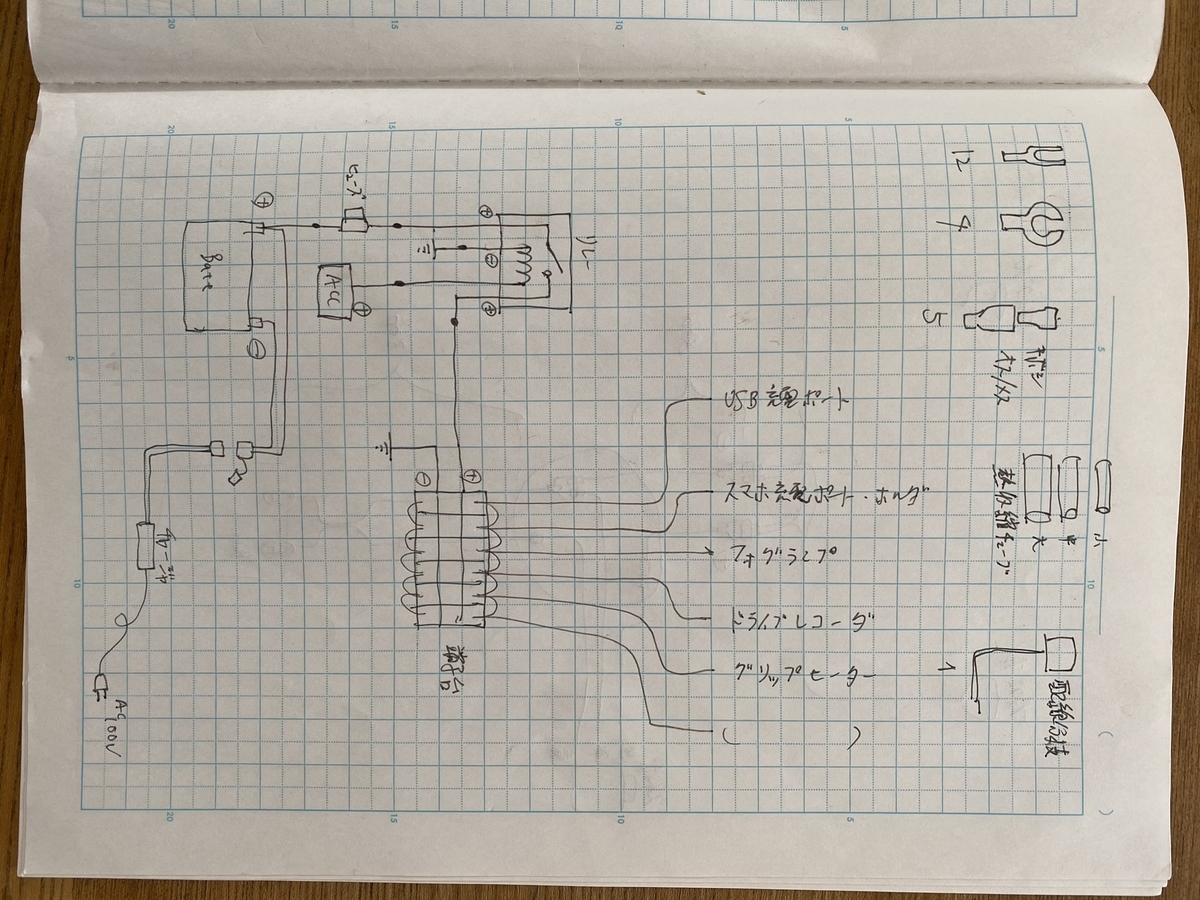 12
4
5
ギボシ
オス/メス
小
中
大
熱収縮チューブ
1
配線分枝
リレー
⊕
⊖
⊕
ヒューズ
ACC
⊕
⊕
Batt
⊖
USB 充電ポート
スマホ充電ポート・ホルダ
フォグランプ
ドライブレコーダ
グリップヒーター
(　　　)
⊖
⊕
端子台
AC
100V
20
15
10
5
20
15
10
5
5
10